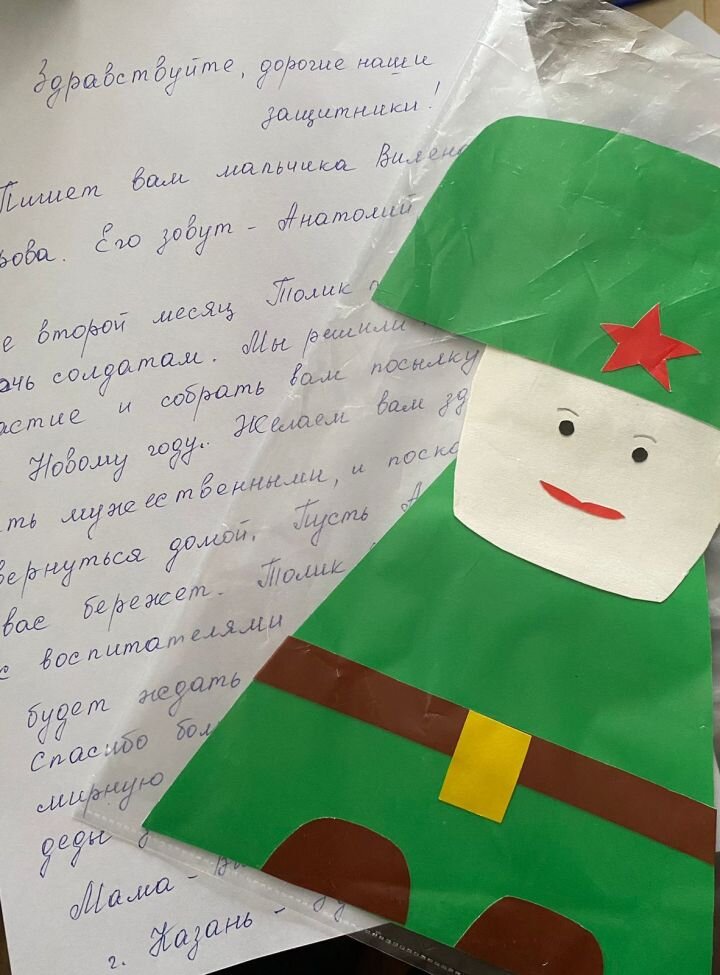 Здравствуйте, дорогие наши
защитники!
Пишет вам мальчика
рова. Его зовут - Анатолий
е второй месяц Толик
очь солдатам. Мы решили
астие и собрать вам посылку
Новому году. Желаем вам зд
ть мужественными, и поско
вернуться домой. Пусть А
вас бережет. Толик
с воспитателями
будет ждать
Спасибо бол
мирную
деды з
Мама -
г. Казань -